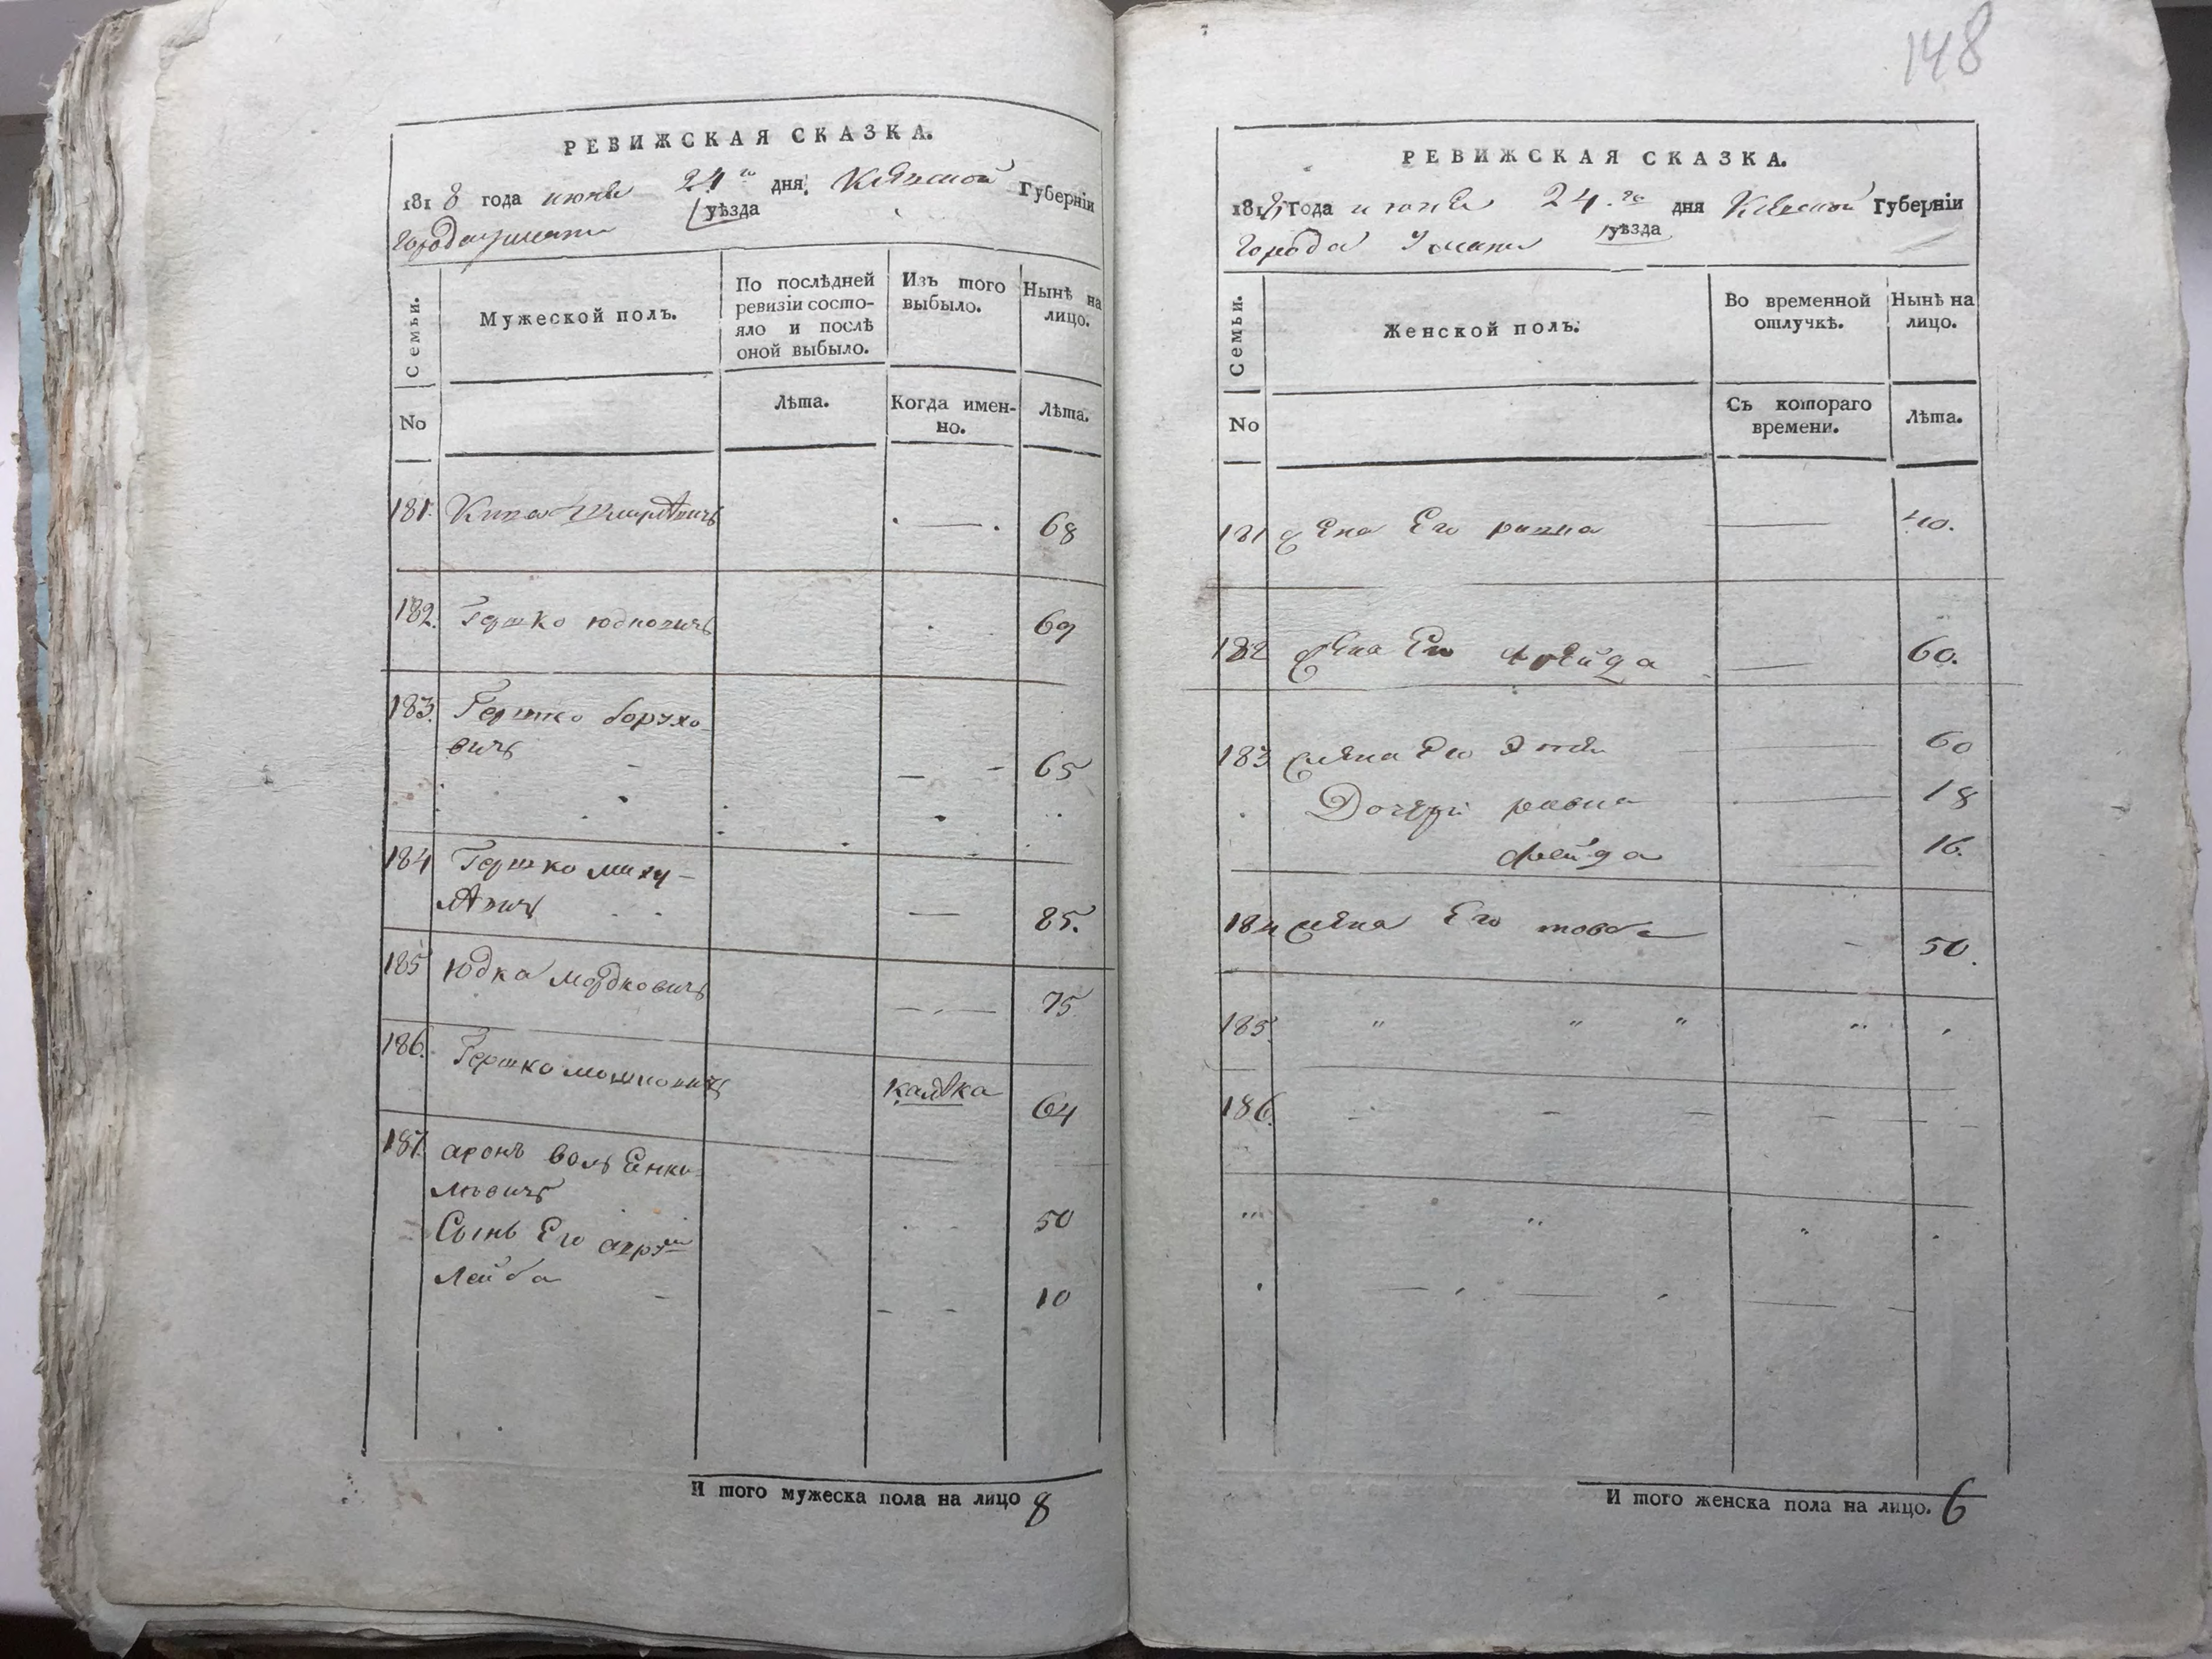 148
РЕВИЖСКАЯ СКАЗКА.
1818 года июня 24го дня Кіевской Губерніи
города Умани уѣзда
Семьи.
Мужеской полъ.
По послѣдней ревизіи состо-
яло и послѣ
оной выбыло.
Изъ того
выбыло.
Нынѣ на
лицо.
No
Лѣта.
Когда имен-
но.
Лѣта.
181. 68
182. Гершко юдковичъ 69
183. Гершко борухо-
вичъ 65
184 Гершко
85.
185 Юдка мордковичъ 75
186. Гершко мошковичъ калѣка 64
187. аронъ волъ Енке-
левичъ 50
Сынъ Его
Лейба 10
И того мужеска пола на лицо 8
РЕВИЖСКАЯ СКАЗКА.
1818 года июня 24.го дня Кіевской Губерніи
города Умани уѣзда
Семьи.
Женской полъ.
Во временной
отлучкѣ.
Нынѣ на
лицо.
No
Съ котораго
времени.
Лѣта.
181 жена Его 40.
182 жена Его фрейда 60.
183 жена Его 60
Дочери 18
фейга 16.
184 жена Его товба 50.
185.
186.
И того женска пола на лицо. 6